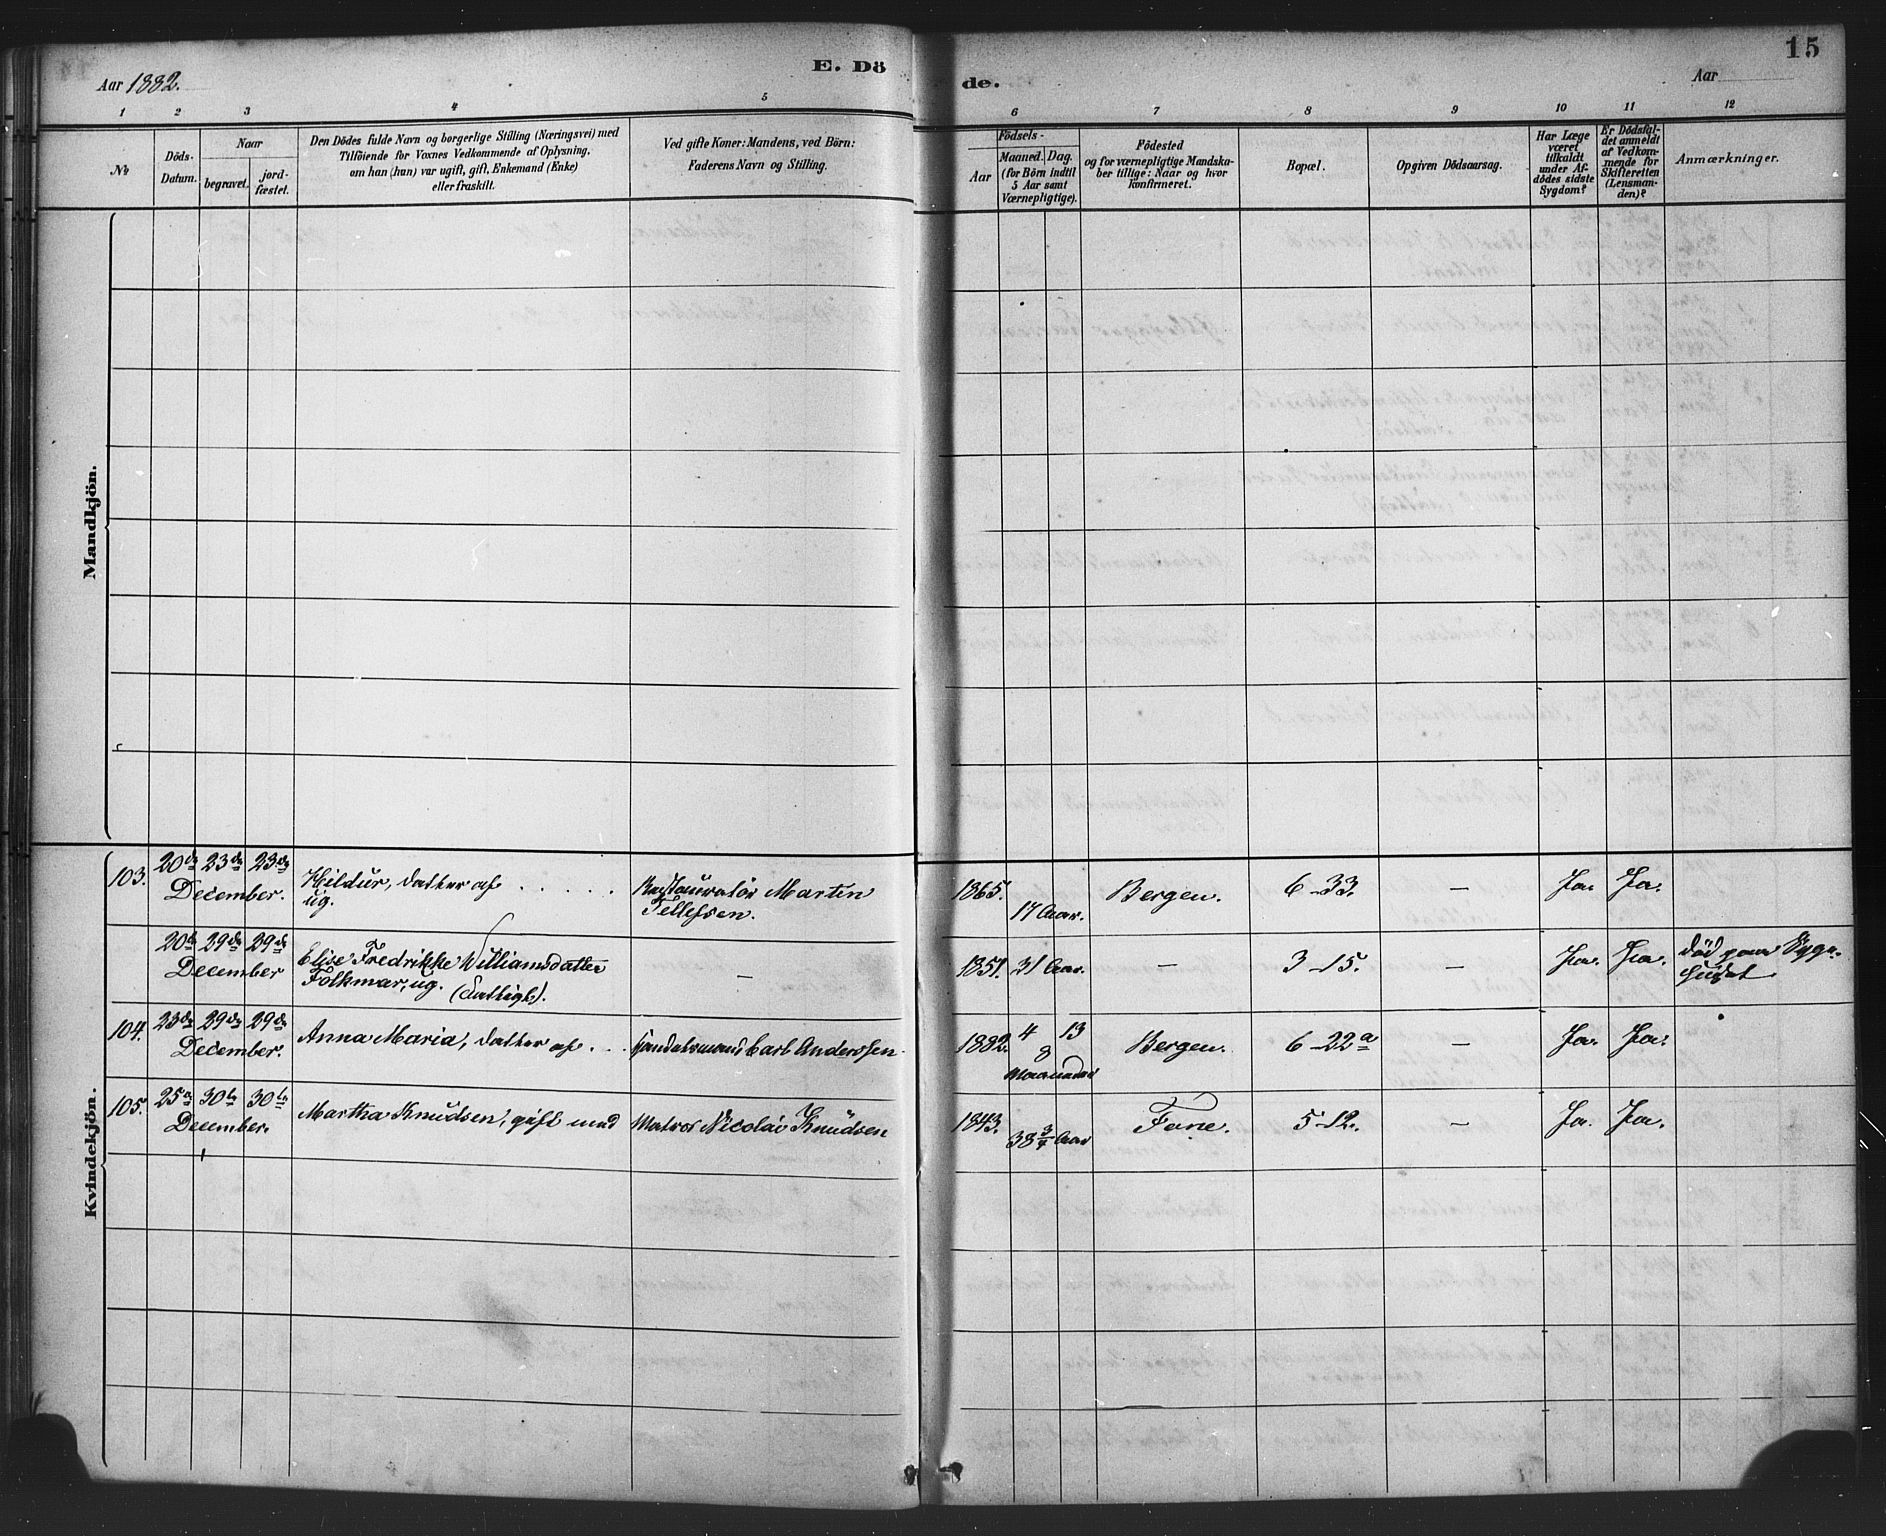 15
Aar 1882.
E. Dö
de.
Aar
1 2 3 4 5 6 7 8 9 10 11 12
No
Döds-
Datum.
Naar
begravet.
jord-
fæstet.
Den Dödes fulde Navn og borgerlige Stilling (Næringsvei) med
Tilföiende for Voxnes Vedkommende af Oplysning,
om han (hun) var ugift, gift, Enkemand (Enke)
eller fraskilt.
Ved gifte Koner: Mandens, ved Börn:
Faderens Navn og Stilling.
Födsels-
Aar
Maaned. Dag.
(for Börn indtil
5 Aar samt
Værnepligtige).
Födested
og for værnepligtige Mandska-
ber tillige: Naar og hvor
konfirmeret.
Bopæl.
Opgiven Dödsaarsag.
Har Læge
været
tilkaldt
under Af-
dödes sidste
Sygdom?
Er Dödsfal-
det anmeldt
af Vedkom-
mende for
Skifteretten
(Lensman-
den)?
Anmærkninger.
Mandkjön.
Kvindekjön.
103. 20de 23de 23de
December.
Hildur, datter af . . . . .
ug.
Restauratør Martin
Tellefsen.
1865. 17 Aar. Bergen. 6-33. — Ja. Ja.
20de 29de 29de
December
Elise Fredrikke Williamsdatter
Folkmar, ug.
—
1851. 31 Aar. — 3-15. — Ja. Ja. Død paa Syge-
huset
104. 23de 29de 29de
December.
Anna Maria, datter af . . .
Handelsmand Carl Anderssen
1882. 4 13
8
Maaneder
Bergen. 6-22a — Ja. Ja.
105. 25de 30te 30te
December.
Martha Knudsen, gift med
Matros Nicolai Knudsen
1843. 38 3/4 Aar Fane. 5-12. — Ja. Ja.